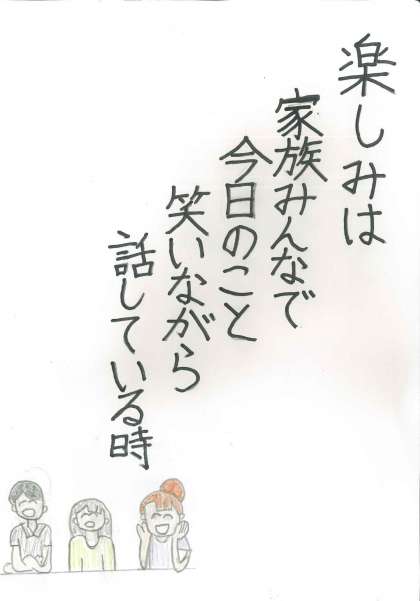 楽しみは
家族みんなで
今日のこと
笑いながら
話している時